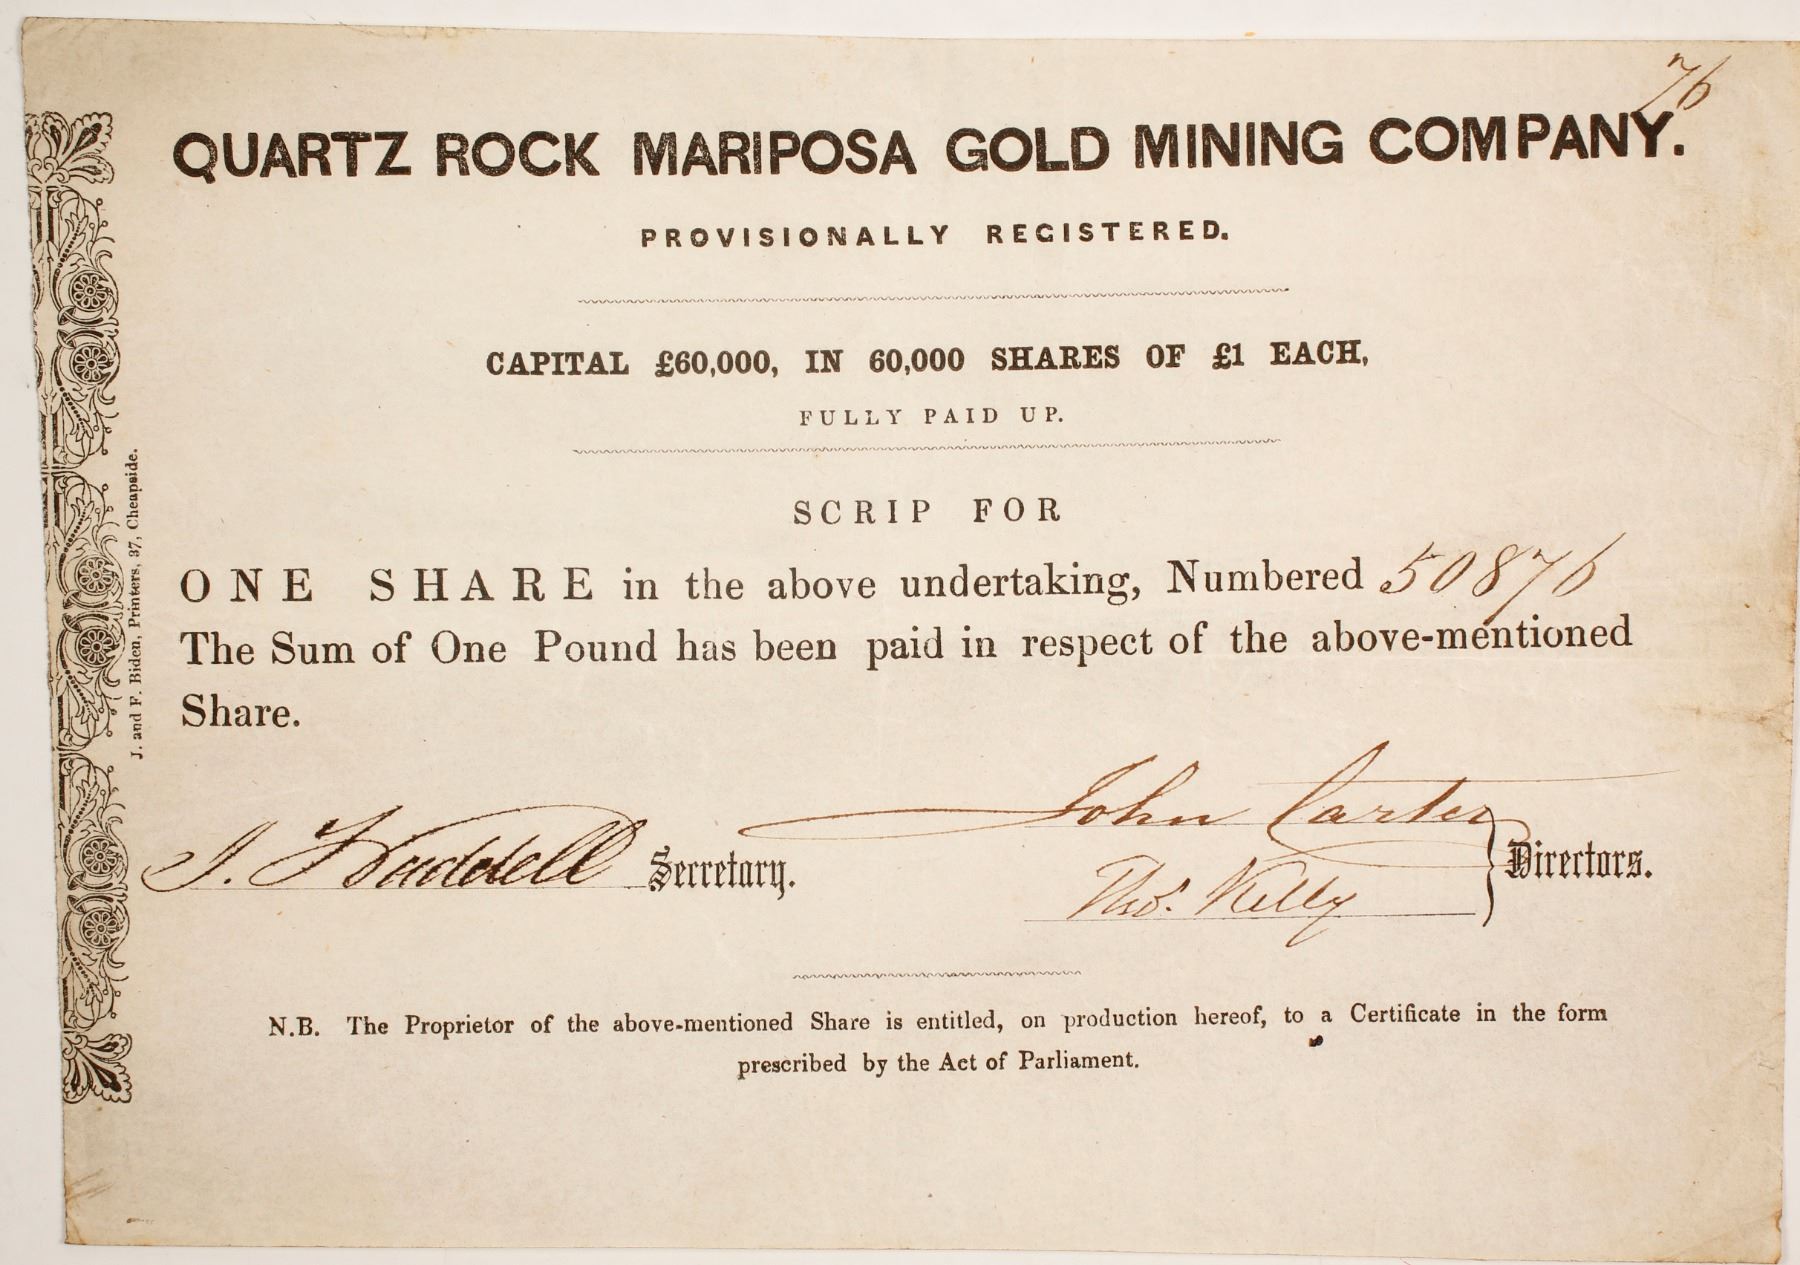 76
QUARTZ ROCK MARIPOSA GOLD MINING COMPANY.
PROVISIONALLY REGISTERED.
CAPITAL £60,000, IN 60,000 SHARES OF £1 EACH,
FULLY PAID UP.
SCRIP FOR
ONE SHARE in the above undertaking, Numbered 50876
The Sum of One Pound has been paid in respect of the above-mentioned
Share.
John Carter
J. Waddell Secretary.
Thos. Kelly Directors.
N.B. The Proprietor of the above-mentioned Share is entitled, on production hereof, to a Certificate in the form
prescribed by the Act of Parliament.
J. and F. Biden, Printers, 37, Cheapside.